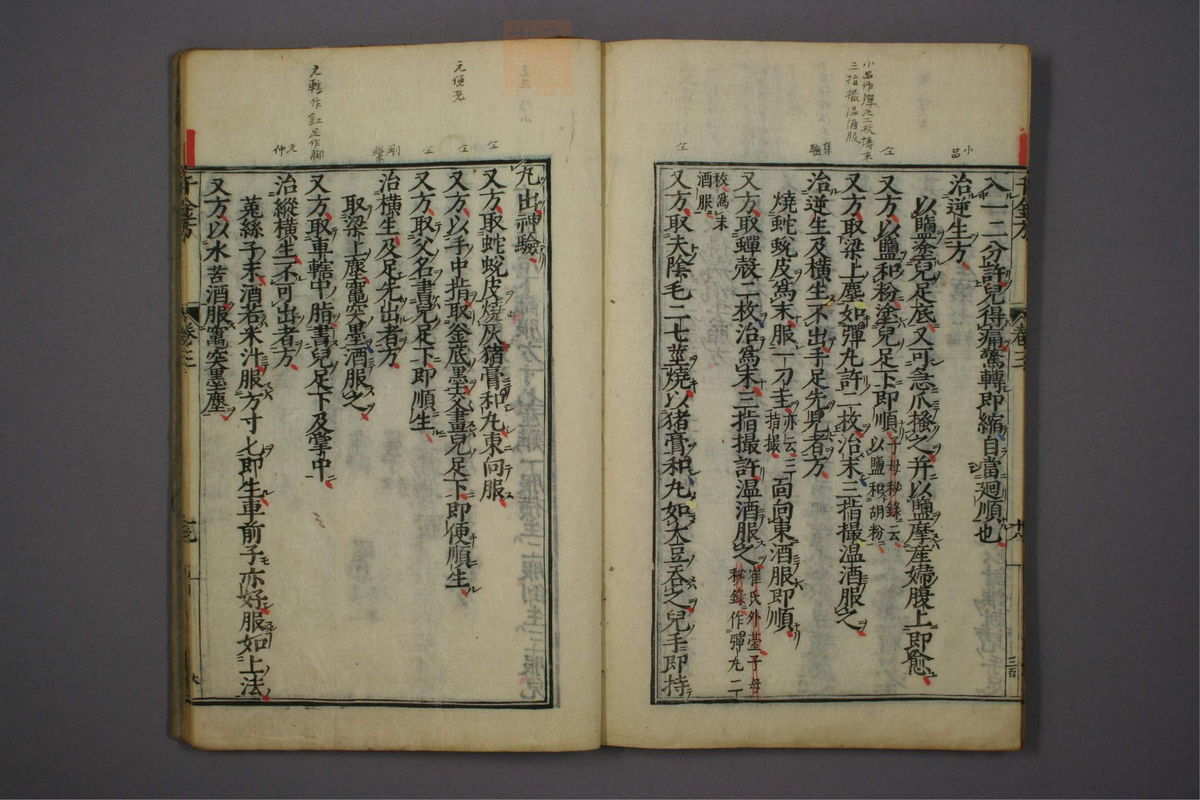 入一二分許兒得痛驚轉即縮自當迴順也
治逆生方
以鹽塗兒足底又可急爪搔之并以鹽摩產婦腹上即愈
又方以鹽和粉塗兒足下即順子母秘錄云以鹽和胡粉
又方取梁上塵如彈丸許二枚治末三指撮温酒服之
治逆生及橫生不出手足先見者方
燒蛇蛻皮為末服一刀圭亦云三指撮面向東酒服即順
又方取蟬殼二枚治為末三指撮許温酒服之崔氏外臺子母秘錄作彈丸二
枚為末酒服
又方取夫陰毛二七莖燒以猪膏和丸如大豆吞之兒手即持
丸出神驗
又方取蛇蛻皮燒灰猪膏和丸東向服
又方以手中指取釜底墨交畫兒足下即便順生
又方取父名書兒足下即順生
治橫生及足先出者方
取梁上塵竈突墨酒服之
又方取車轄中脂書兒足下及掌中
治縱橫生不可出者方
菟絲子末酒若米汁服方寸匕即生車前子亦好服如上法
又方以水苦酒服竈突墨塵
千金方
卷二
小品作彈丸二枚搏末
三指撮温酒服
元便无